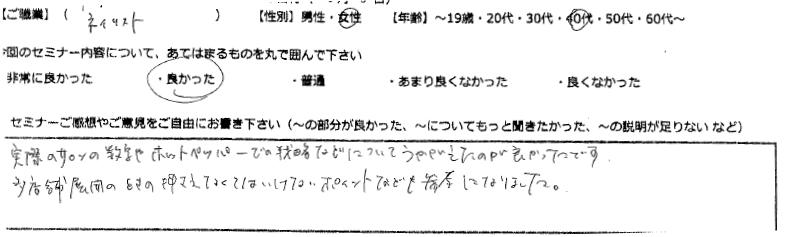 【ご職業】( ネイリスト ) 【性別】男性・女性 【年齢】～19歳・20代・30代・40代・50代・60代～
回のセミナー内容について、あてはまるものを丸で囲んで下さい
非常に良かった ・良かった ・普通 ・あまり良くなかった ・良くなかった
セミナーご感想やご意見をご自由にお書き下さい（～の部分が良かった、～についてもっと聞きたかった、～の説明が足りない など）
実際のサロンの数字やホットペッパーでの状況などについてうかがえたのが良かったです。
多店舗展開のときの押さえなくてはいけないポイントなども参考になりました。